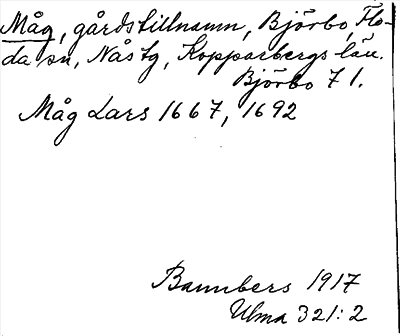 Måg, gårdstillnamn, Björbo, Flo-
da sn, Nås tg, Kopparbergs län.
Björbo 71.
Måg Lars 1667, 1692
Bannbers 1917
Ulma 321:2